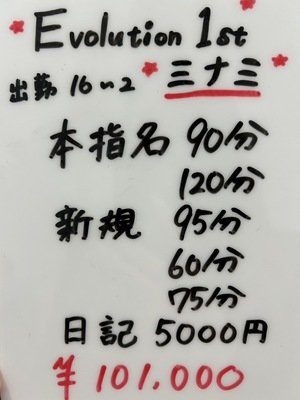 Evolution 1st
出勤 16〜2 ミナミ
本指名 90分
120分
新規 95分
60分
75分
日記 5000円
¥ 101.000